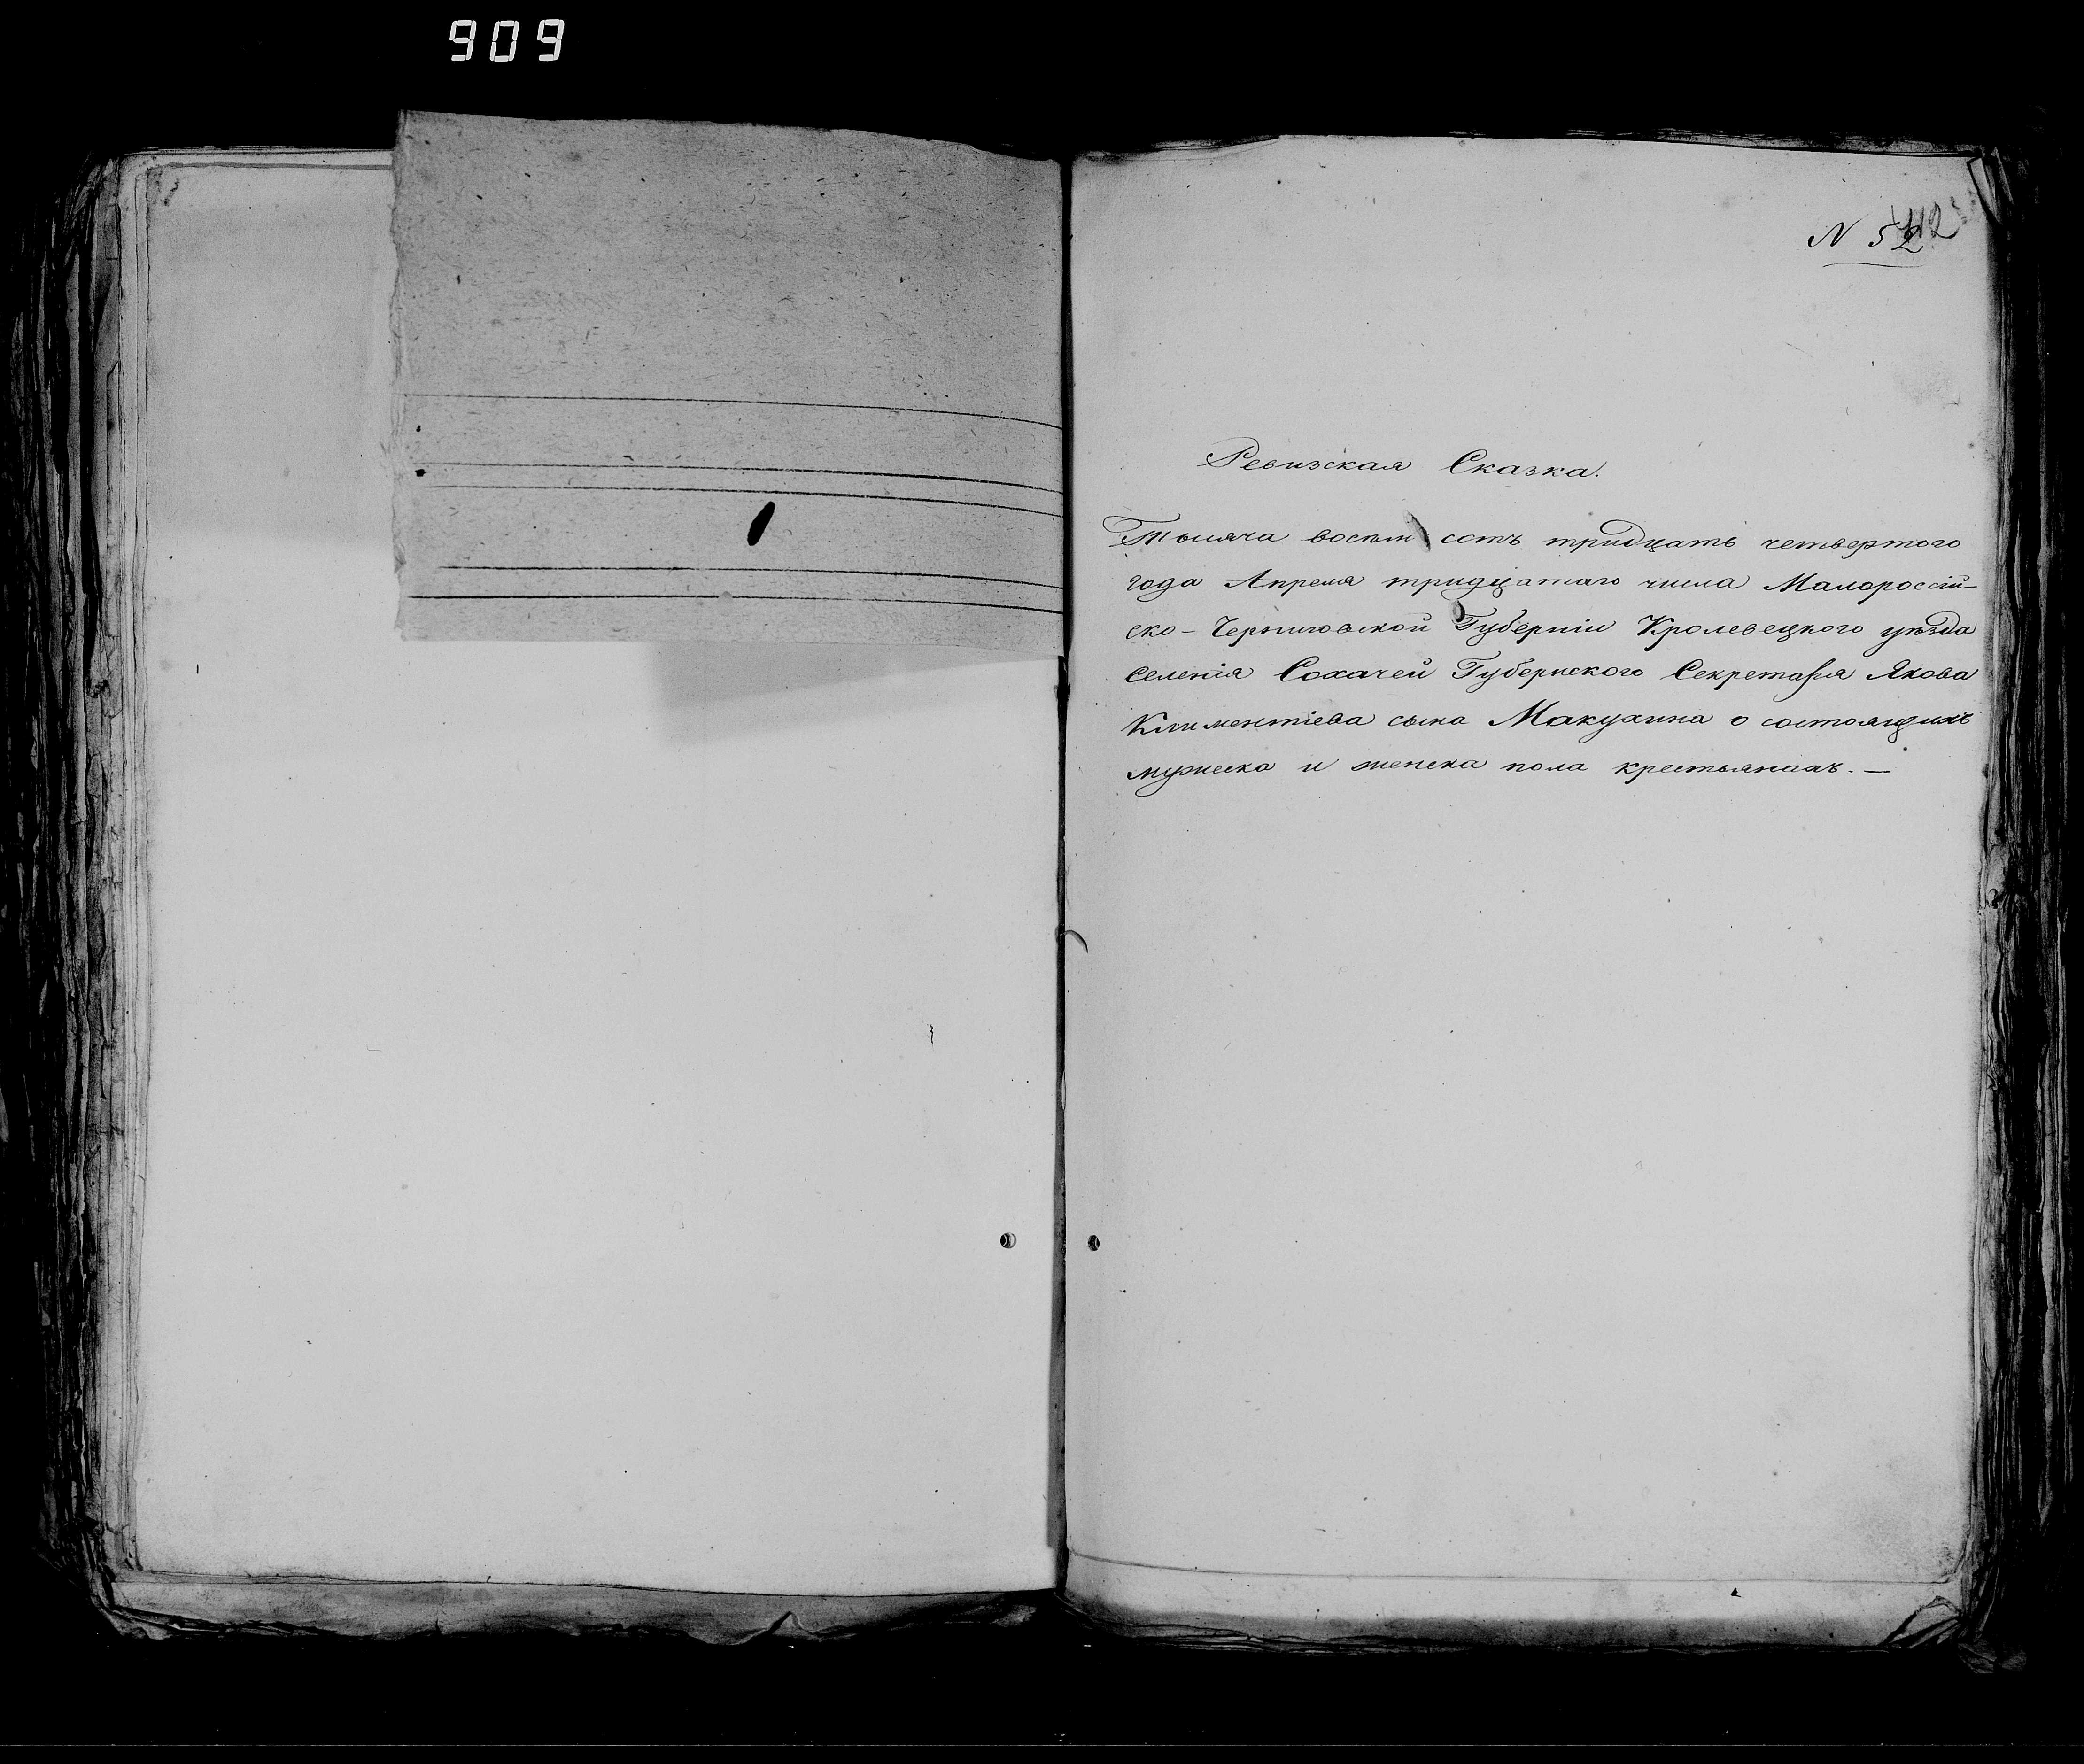 909
N 52
Ревизская Сказка.
Тысяча восьми сотъ тридцать четвертого
года Апреля тридцатаго числа Малороссій-
ско-Черниговской Губерніи Кролевецкого уѣзда
Селенія Сохачей Губернского Секретаря Якова
Климентіева сына Макухина о состоящихъ
мужеска и женска пола крестьянахъ. —